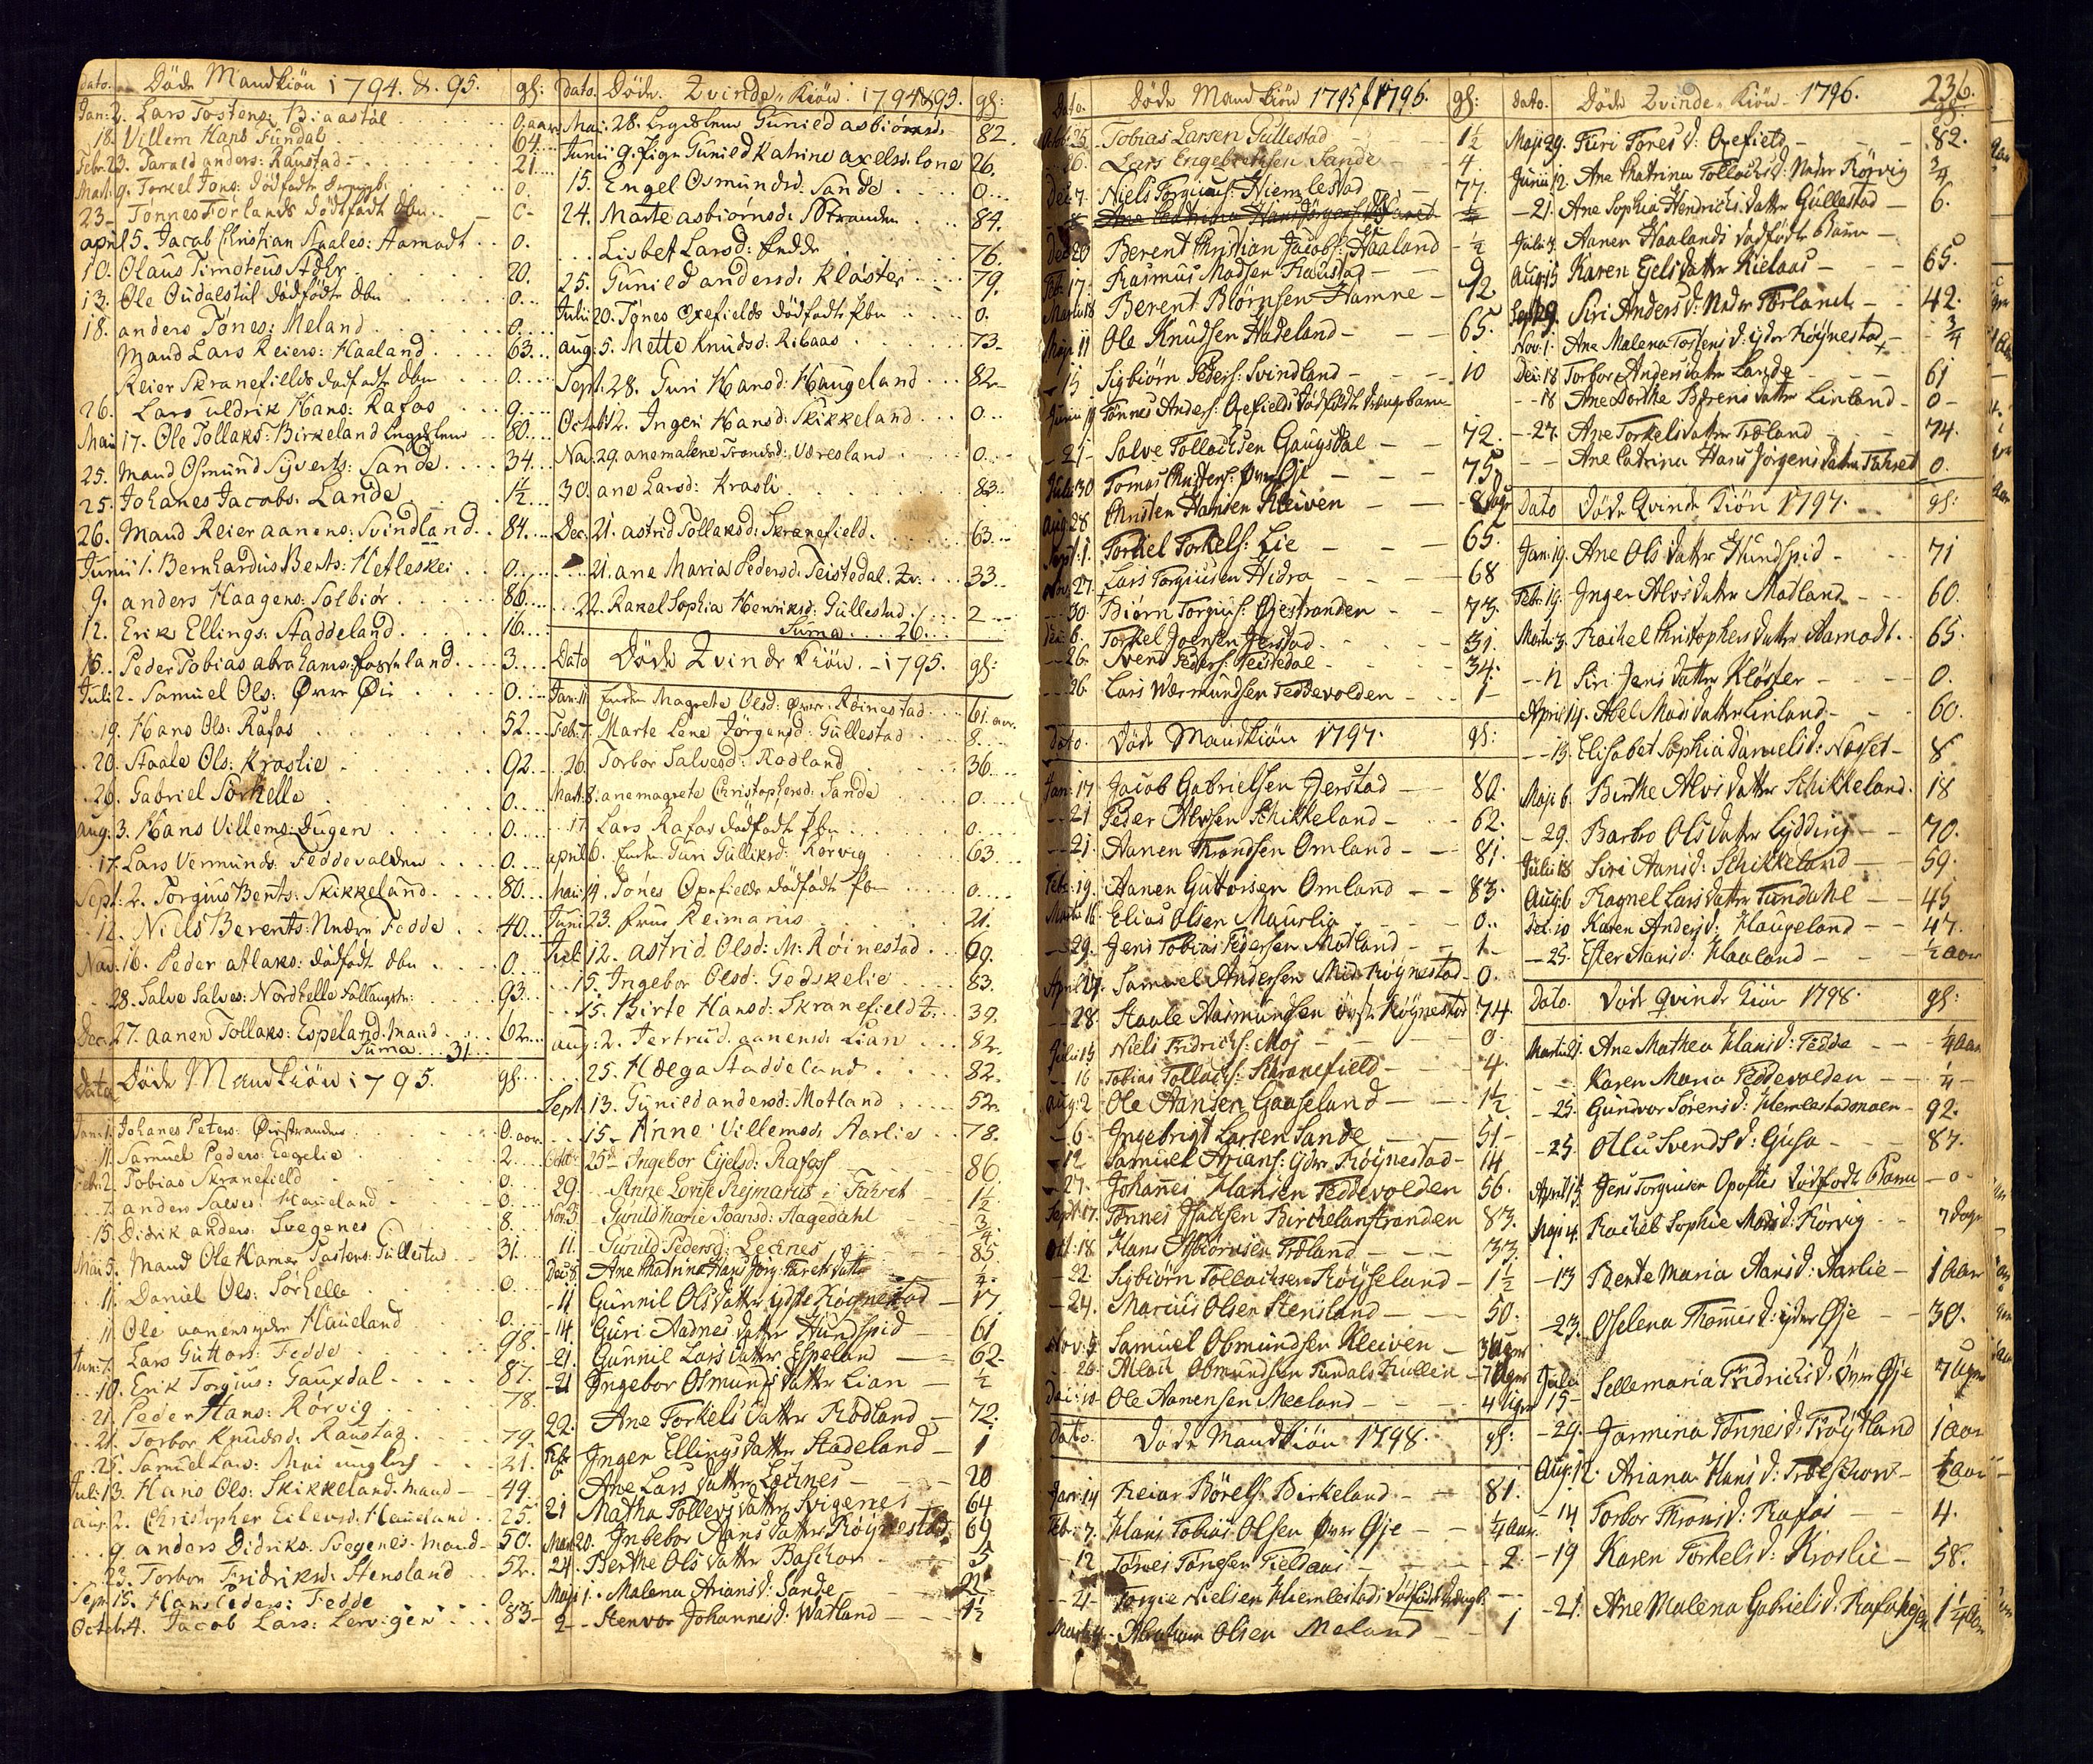 Dato. Døde Mandkiön 1794. & 95. gl:
Jan: 2. Lars Tostens: Braastäl 0. aar
18. Villem Hans: Fundal 64.
Febr. 23. Tarald anders: Raustad 21.
Mart. 9. Torkel Jons: dödfödte 0.
23. Tönnes Förlands dödfödt dbn. 0
april 5. Jacob Christian Staales: Aamodt 0.
10. Olaus Timoteus Adler 20.
13. Ole Oudalstal dödfödte dbn 0.
18. anders Tønes: Meland 0.
Mand Lars Reiers: Haaland 63.
Reier Skranefields dødfødte dbn 0.
26. Lars uldrik Hans: Rafos 9.
Mai. 17. Ole Tollaks: Birkeland Legdslem 80.
25. Mand Osmund Syverts: Sande 34.
25. Johanes Jacobs: Lande 1½
26. Mand Reier aanens: Svindland 84.
Junii 1. Bernhardus Bents: Hetleskei 0.
9. anders Haagens: Solbiør 86.
12. Erik Ellings: Staddeland 16.
15. Peder Tobias abrahams: fosseland 3.
Juli 2. Samuel Ols: Øvre Øie 0.
19. Hans Ols: Rafos 52.
20. Staale Ols: Kraslie 92.
26. Gabriel Sørhelle 0.
aug: 3. Hans Villems: Dugen 0.
17. Lars Vermunds: Feddevalden 0.
Sept: 2. Torgius Bents: Skikkeland 80.
12. Niels Berents: Nedre Fedde 40.
Nov. 16. Peder atlaks: dødfødt dbn 0.
28. Salve Salves: Nordhelle 93.
Dec. 27. aanen Tollaks: Espeland. Mand 62.
Suma 31
Dato Døde Mandkiön 1795. gl:
Jan: 1. Johanes Peters: Øiestranden 0. aar
11. Samuel Peders: Eegelie 2.
Febr. 2. Tobias Skranefield 0.
7. anders Salves: Haueland 0.
15. Didrik anders: Svegenes 8.
Mai 5. Mand Ole Hamer Tostens: Gullestad 31.
11. Daniel Ols: Sørhelle 0.
11. Ole aanens: ydre Haueland 0.
Jun: 7. Lars Guttors: Fedde 98.
10. Erik Torgius: Gauxdal 87.
21. Peder Hans: Rørvig 78.
21. Torbor Knudsd: Raustad 79.
25. Samuel Lars: Moi 21.
Juli: 13. Hans Ols: Skikkeland. Mand 49.
aug: 2. Christopher Eilersd: Haueland 25.
9. anders Didriks: Svegenes. Mand 50.
23. Torbor Fridriksd: Stensland 52.
Sept: 15. Hans Peders: Fedde 0.
Octobr 4. Jacob Lars: Lervigen 83
Dato. Døde Zvinde-Kiøn. 1794 & 95. gl:
Mai: 28. Legdslem Gunild asbiørnsd: 82.
Junii 9. Pige Gunild Katrine axelsd: lone 26.
15. Engel Osmundsd: Sande 0.
24. Marte asbiørnsd: Stranden 84.
Lisbet Larsd: Fedde 76.
25. Gunild andersd: Kloster 79.
Julii 20. Tønes Oxefields dødfødte Pbn 0.
aug: 5. Mette Knudsd: Ribaas 73
Sept: 28. Guri Hansd: Haugeland 82
Octobr 12. Inger Hansd: Skikkeland 0.
Nov. 29. ane malene Tronsd: Væresland 0.
30. ane Larsd: Krasli 83.
Dec: 21. astrid Tollaksd: Skranefield 63.
21. ane Maria Pedersd: Teistedal. Zv: 33.
22. Rakel Sophia Henriksd: Gullestad 2
Suma 26
Dato Døde Zvinde kiön. 1795. gl:
Jan: 11 Enke Magrete Olsd: øvre Røinestad 61. aar.
Feb: 7. Marte Lene Jørgensd: Gullestad 8.
26. Torbor Salvesd: Rødland 36.
Mart. 8. ane magrete Christophersd: Sande 0.
17. Lars Rafos dødfødt Pbn 0.
april 6. Enke Guri Gulliksd: Rørvig 63
Mai: 14. Tønes Oxefields dødfødt Pbn 0.
Juni 23. frue Reimarus 21.
Juli: 12. astrid Olsd: M: Røinestad 69.
15. Ingebor Olsd: Gedskelie 83.
15. Birte Hansd: Skranefield Z: 39.
aug: 2. Jertrud aanensd: Lian 82.
25. Hæga Staddeland 82.
Sept. 13. Gunild andersd: Motland 52.
15. Anne Villemsd: Aarlie 78.
Octbr: 25de Ingebor Eyelsd: Rafoss 86
29. Anne Lovise Rejmarus i Fahret 1½
Nov: 3. Gunild Marie Joansd: Aagedahl ¾
11. Gunild Pedersd: Lednes 85
Dec: 8. Ane Chatrine Hans Jörg: Faret datter ¼
11 Gunnil Ols datter ydste Røgnestad 17
14. Guri Aadnes datter Hundspid 61
21. Gunnil Lars datter Espeland 62
21 Ingebor Osmunds datter Lian ½
22. Ane Torkels datter Rødland 72.
Febr. 6 Inger Ellings datter Stadeland 1
Ane Lars datter Lednes 20
21 Matha Tollevs datter Svigenes 64
Mart: 20. Ingebor Hans datter Røgnestad 69
24. Berthe Ols datter Boschor 5
Maji 1. Malena Arians d: Sande
2. Stenvor Johannes d: Watland 1½
Dato. Døde Mandkiön 1795 & 1796. gl:
25 Tobias Larsen Gullestad 1½
26. Lars Engebretsen Sande 4
Dec: 7. Niels Torgius: Hiemlestad 77
Dec: 20 Berent Christian Jacobs: Haaland ½
Feb: 17. Rasmus Madsen Raustad 9
Martii 18 Berent Biørnsen Hamne 72.
Maji 11 Ole Knudsen Hadeland 65.
15 Sigbiørn Peders: Svindland 10
Junii 19 Tønnes Anders: Oxefields dødfødte drengebarn
21 Salve Tollachsen Gaugsdal 72.
Julii 30 Tomas Christens: Øvre Øje 75
Aug: 28 Christen Hansen Kleiven 8 dage
Sept: 1. Torkel Torkels: Lie 65.
Nov: 27. Lars Torgiusen Hidra 68
30 Biørn Torgius: Øjestranden 73.
Dec: 6. Torkel Joensen Jerstad 31.
26. Svend Peders: Teistedal 34.
26 Lars Wermundsen Feddevolden 1
Dato. Døde Mandkiøn 1797. gl:
Jan: 17 Jacob Gabrielsen Jerstad 80.
21 Peder Alvsen Schikkeland 62.
21. Aanen Throndsen Omland 81.
Febr: 19. Aanen Guttorsen Omland 83.
Martii 16. Elias Olsen Maurlia 0.
29. Jens Tobias Pedersen Motland 1
April 17. Samuel Andersen Mid Røgnestad 0.
28. Staale Aasmundsen övste Røgnestad 74.
Julii 15 Niels Fridrichs: Moj 0
16 Tobias Tollachs: Skranefield 4.
Aug: 2 Ole Hansen Gaaseland 1½
6 Ingebrigt Larsen Sande 51
12 Samuel Arians: ydre Røgnestad 14
27. Johannes Hansen Feddevolden 56.
Sept: 17. Tønnes Isachsen Birchelanstranden 83.
Oct: 18. Hans Asbiørnsen Træland 33.
22. Sigbiørn Tollachsen Røyseland 1½
24. Marcus Olsen Stensland 50.
Nov: 5 Samuel Osmundsen Kleiven 3 Uger
26 Atlach Osmundsen Fundals Kullien 7 Uger
Dec: 10 Ole Aanensen Meeland 4 Uger
Dato. Døde Mandkiøn 1798. gl:
Jan: 14 Reiar Börels: Birkeland 81.
Febr: 7. Hans Tobias Olsen Øvre Øje ¼ aar.
12 Tønnes Tønesen Fieldaas 2
21 Torgie Nielsen Hiemlestads dødfødte drengb:
Martii 4. Abraham Olsen Meland 1
Dato. Døde Zvinde-Kiön 1796. gl: 236.
Maji 29. Turi Tones d: Oxefield 82.
Junii 12 Ane Chatrina Tollachs d: Nedre Rørvig ¾
21. Ane Sophia Hendrichs datter Gullestad 6.
Julii 3. Aanen Haalands dødfødte Barn
Aug: 15 Karen Ejels datter Rielaas 65.
Sept: 29. Siri Anders d: Nedre Førland 42.
Nov: 1. Ane Malena Tostens d: ydre Røgnestad ¾
Dec: 18 Torbor Anders datter Lande 61
18 Ane Dorthe Bærens datter Linland 0
27. Ane Torkels datter Træland 74.
Ane Catrina Hans Jørgens datter Fahret 0.
Dato Døde Qvinde Kiön 1797. gl:
Jan: 19. Ane Ols datter Hundspid 71
Febr: 19. Inger Alvs datter Motland 60.
Martii 3. Rachel Christophers datter Aamodt 65
12 Siri Jens datter Kløster 0.
April 14. Abel Mads datter Linland 60.
13. Elisabet Sophia Daniels d: Næset 8
Maji 6. Birthe Alvs datter Schikkeland 18
29. Barbro Ols datter Lydding 70.
Julii 18 Siri Aans d: Schikkeland 59.
Aug: 6 Ragnel Lars datter Fundahl 45
Dec: 10 Karen Anders d: Haugeland 47.
25. Ester Hans d: Haaland ½ aar
Dato. Døde qvinde Kiøn 1798. gl:
Martii 21. Ane Mathea Hans d: Fedde ¼ aar
Karen Maria Feddevolden ¼
25. Gundvor Sørens d: Hemlestadmoen 92.
25. Ollu Svends d: Gjusa 87.
April 15 Jens Torgiusen Opoftes dødfødte Barn 0
Maji 4. Rachel Sophie Mads d: Rørvig 7 dage
13 Bente Maria Hans d: Aarlie 1 Aar
23. Oselena Thomes d: ydre Øje 30.
Julii 15 Sellemaria Fridrichs d: Övre Øje 7 Uger
29. Jarmina Tønnes d: Frøytland 1 aar
Aug: 12. Ariana Hans d: Trælschor ½ aar
14 Torbor Throns d: Rafos 4.
19 Karen Torkels d: Kroslie 58.
21. Ane Malena Gabriels d: Rafoshejen 1¼ Aar